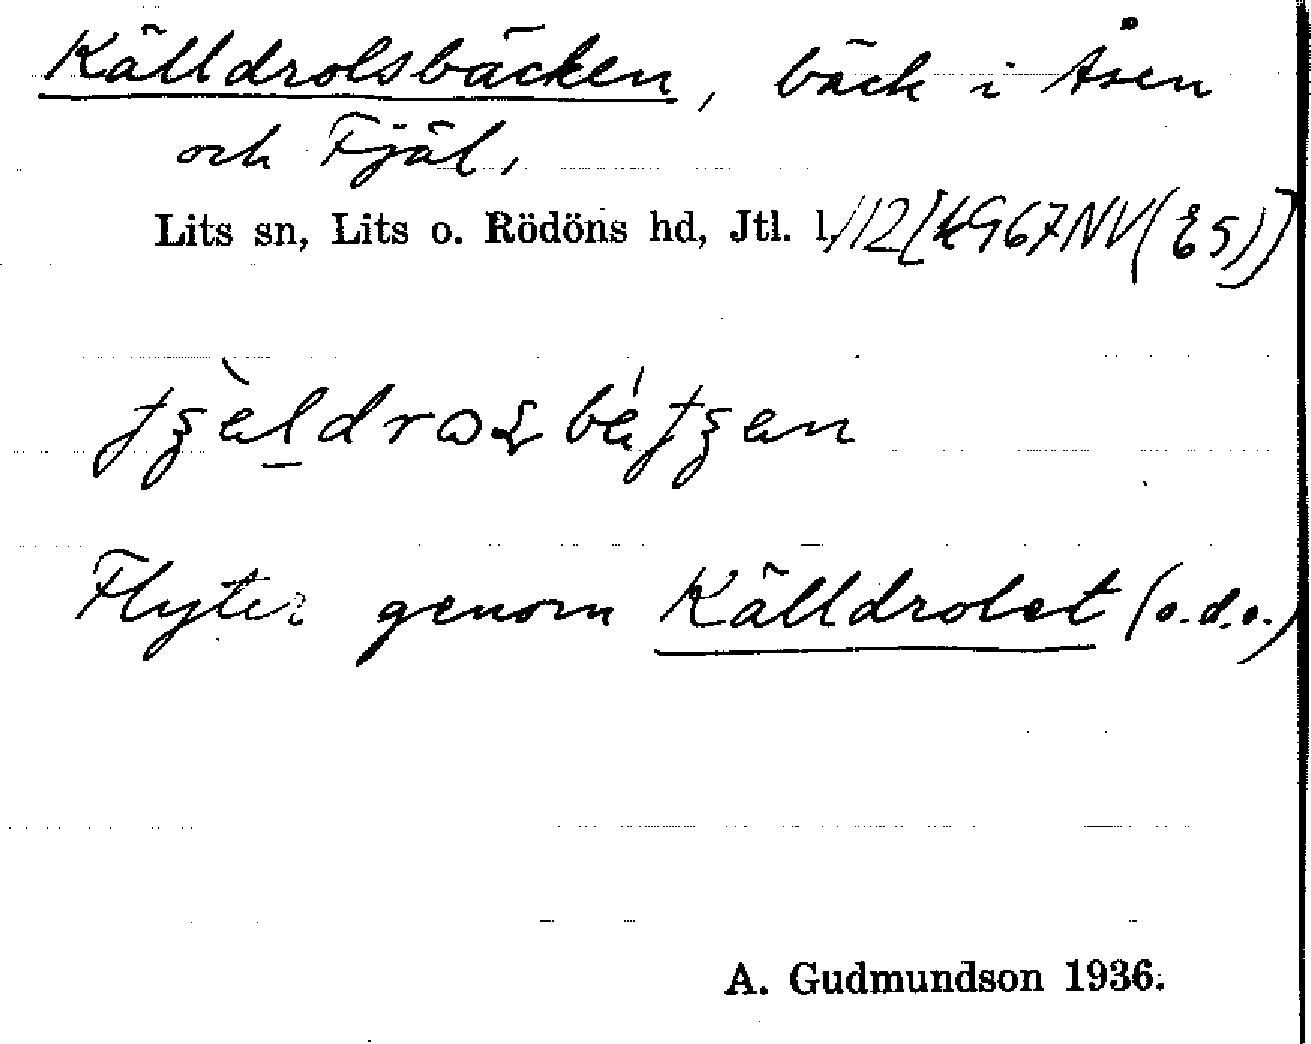 Källdrolsbäcken, bäck i Åsen
och Fjäl,
Lits sn, Lits o. Rödöns hd, Jtl. l.
Flyter genom Källdrolet (o.d.o.)
A. Gudmundson 1936.